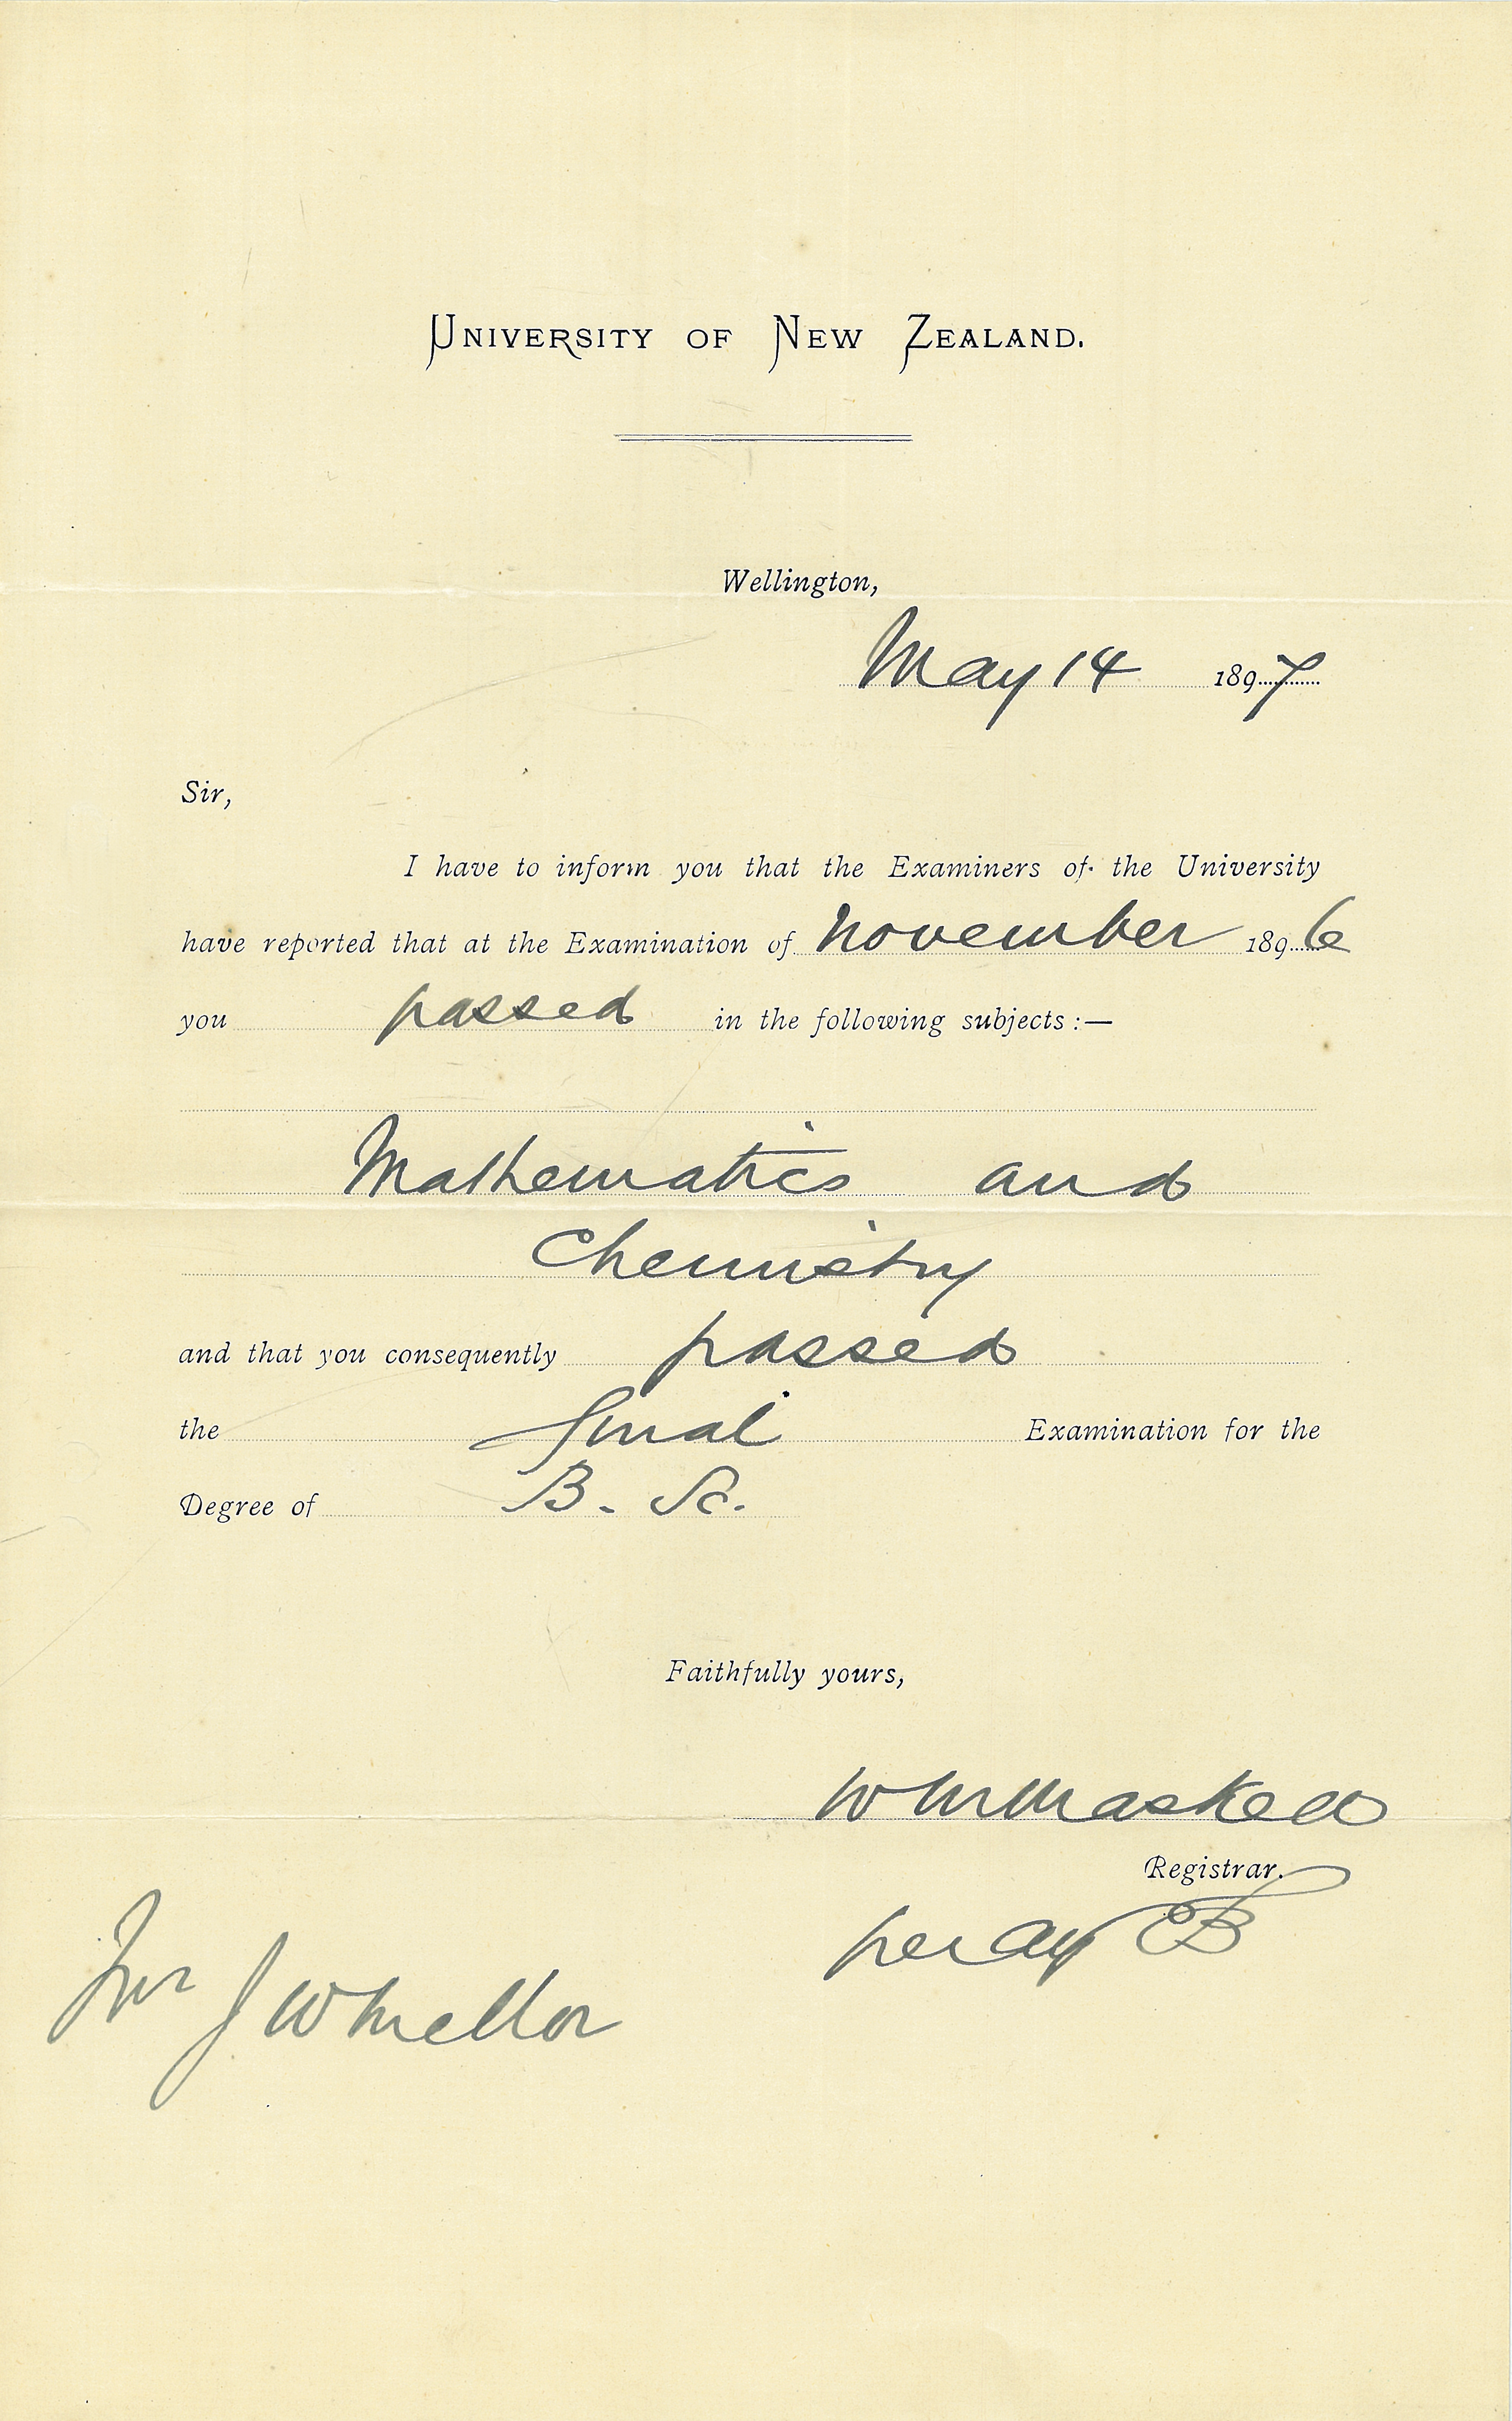 University of New Zealand.
Wellington,
May 14 1897
Sir,
I have to inform you that the Examiners of the University
have reported that at the Examination of November 1896
you passed in the following subjects:—
Mathematics and
Chemistry
and that you consequently passed
the final Examination for the
Degree of B. Sc.
Faithfully yours,
W M Maskell
Registrar.
per
Mr J W Mellor